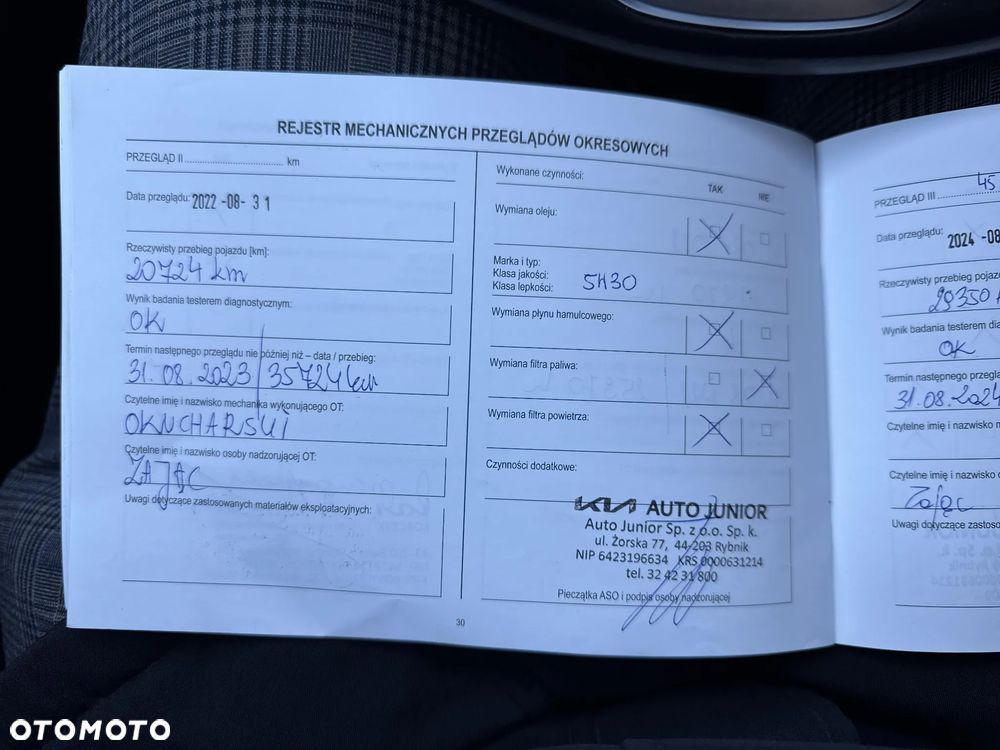 REJESTR MECHANICZNYCH PRZEGLĄDÓW OKRESOWYCH
PRZEGLĄD II .................................... km
Data przeglądu: 2022 -08- 31
Rzeczywisty przebieg pojazdu [km]:
20724 km
Wynik badania testerem diagnostycznym:
OK
Termin następnego przeglądu nie później niż – data / przebieg:
31.08.2023 / 35724 km
Czytelne imię i nazwisko mechanika wykonującego OT:
Czytelne imię i nazwisko osoby nadzorującej OT:
ZAJĄC
Uwagi dotyczące zastosowanych materiałów eksploatacyjnych:
Wykonane czynności:
TAK NIE
Wymiana oleju:
Marka i typ:
Klasa jakości:
Klasa lepkości:
Wymiana płynu hamulcowego:
Wymiana filtra paliwa:
Wymiana filtra powietrza:
Czynności dodatkowe:
KIA AUTO JUNIOR
Auto Junior Sp. z o.o. Sp. k.
ul. Żorska 77, 44-203 Rybnik
NIP 6423196634 KRS 0000631214
tel. 32 42 31 800
Pieczątka ASO i podpis osoby nadzorującej
30
PRZEGLĄD III ............ 45
Data przeglądu: 2024 -08
Rzeczywisty przebieg
29350
Wynik badania testerem
OK
Termin następnego
31.08.2024
Czytelne imię i nazwisko
Czytelne imię i nazwisko
Zając
Uwagi dotyczące
OTOMOTO